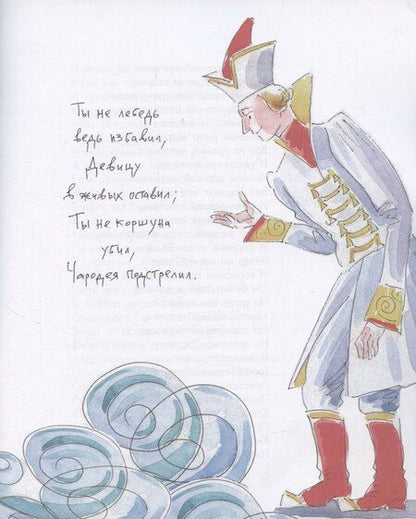 Ты не лебедь
ведь избавил,
Девицу
в живых оставил;
Ты не коршуна
убил,
Чародея подстрелил.